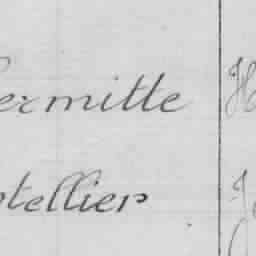 ermitte H
tellier J